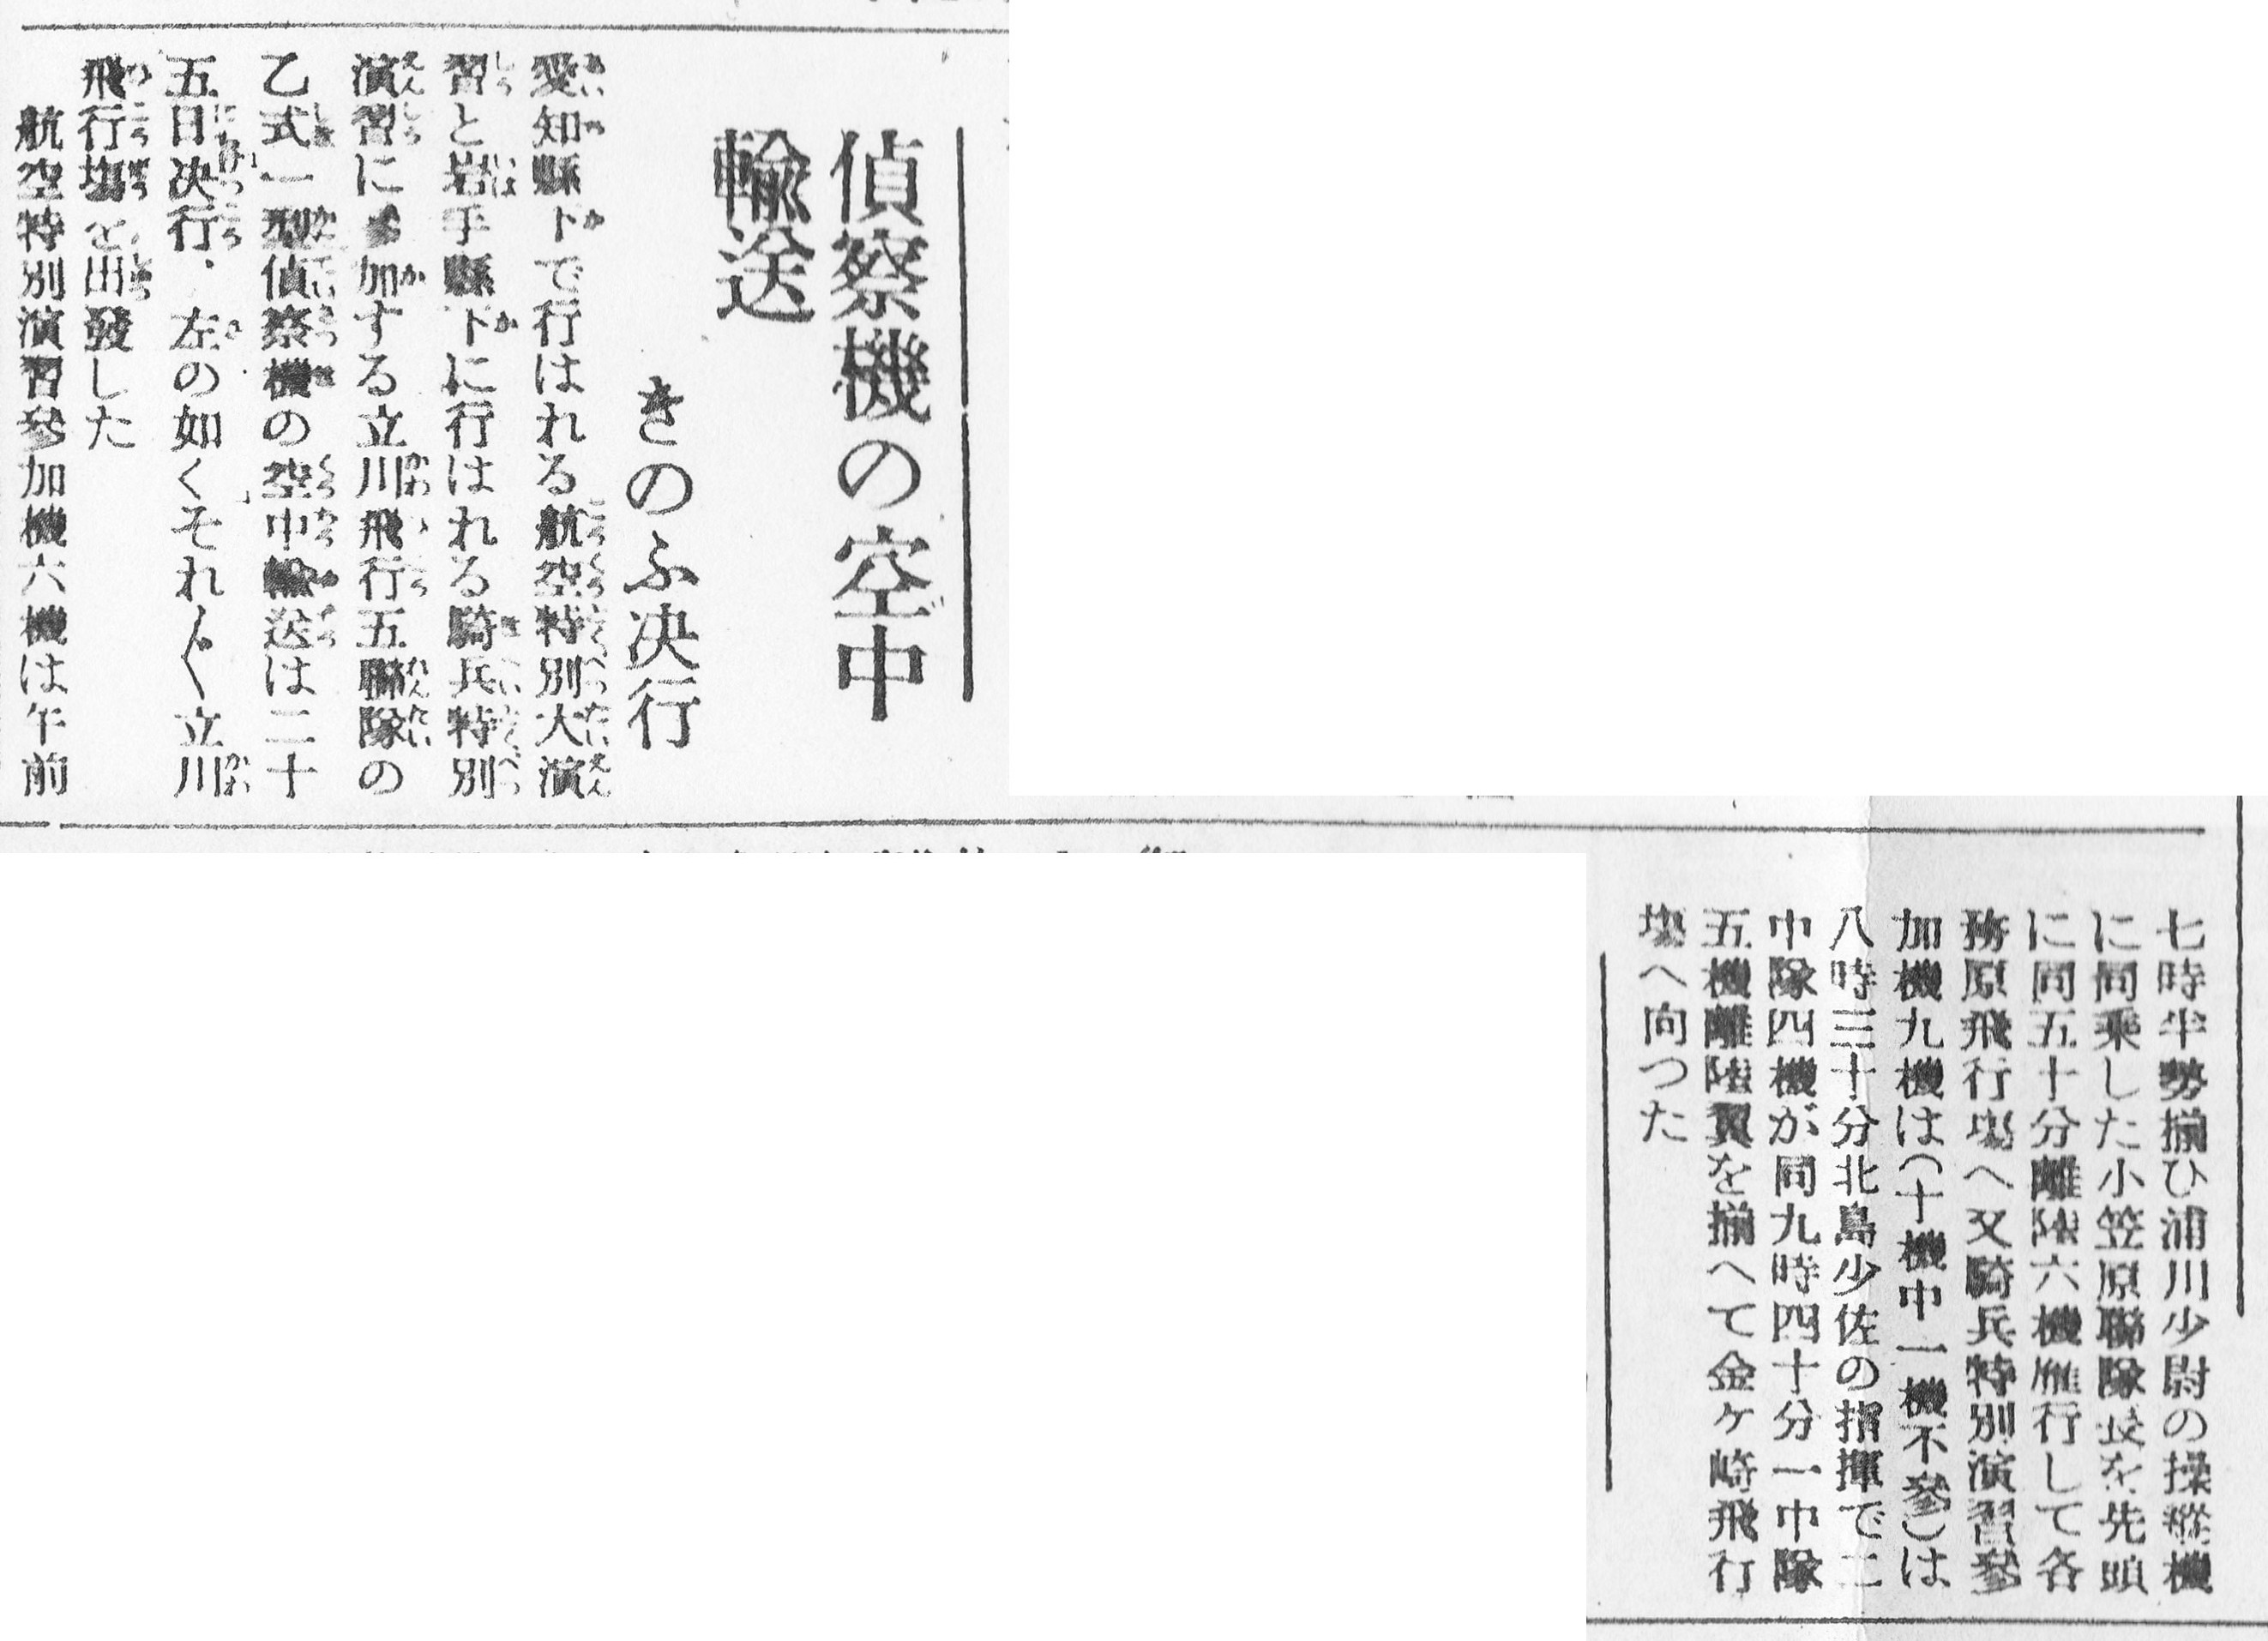 偵察機の空中
輸送
きのふ決行
愛知縣下で行はれる航空特別大演
習と岩手縣下に行はれる騎兵特別
演習に參加する立川飛行五聯隊の
乙式一型偵察機の空中輸送は二十
五日決行、左の如くそれ〴〵立川
飛行塲を出發した
航空特別演習參加機六機は午前
七時半勢揃ひ浦川少尉の操縱機
に同乘した小笠原聯隊長を先頭
に同五十分離陸六機雁行して各
務原飛行塲へ又騎兵特別演習參
加機九機は(十機中一機不參)は
八時三十分北島少佐の指揮で二
中隊四機が同九時四十分一中隊
五機離陸翼を揃へて金ケ崎飛行
塲へ向つた